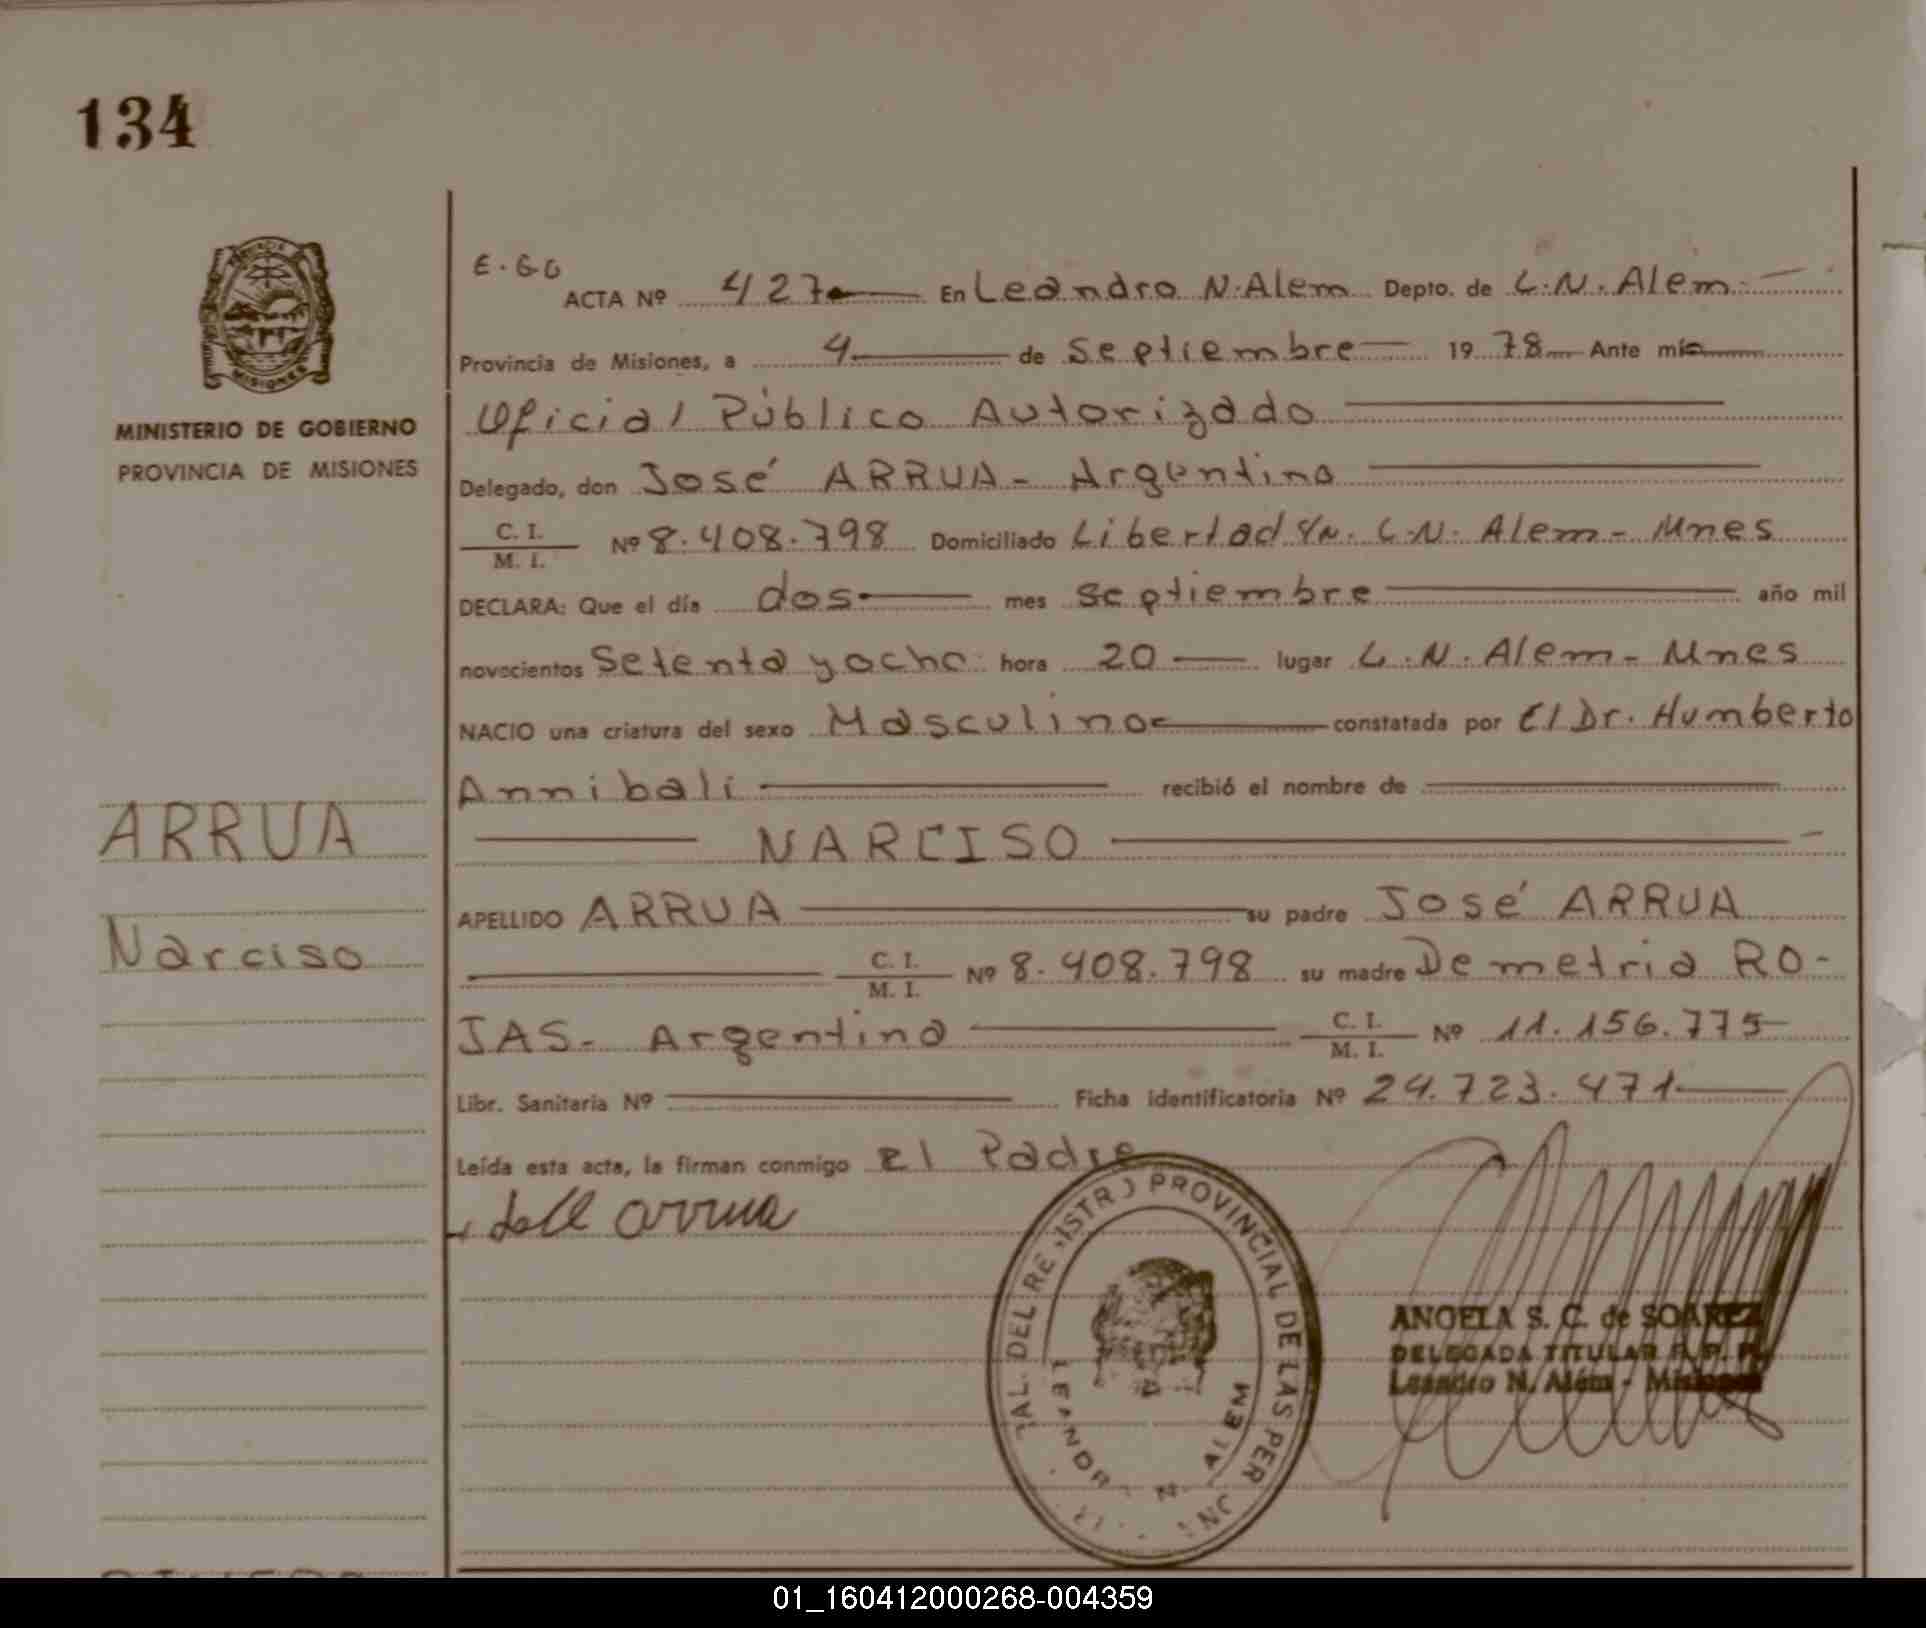 134
MISIONES
MINISTERIO DE GOBIERNO
PROVINCIA DE MISIONES
ARRUA
Narciso
E.GG
ACTA Nº 427 En Leandro N. Alem Depto. de L.N. Alem
Provincia de Misiones, a 4 de Septiembre 19 78 Ante mí
Oficial Público Autorizado
Delegado, don José ARRUA - Argentino
C. I.
M. I. Nº 8.408.798 Domiciliado Libertad S/N. L.N. Alem - Mnes
DECLARA: Que el día dos mes Septiembre año mil
novecientos Setenta y ocho hora 20 lugar L.N. Alem - Mnes
NACIO una criatura del sexo Masculino constatada por El Dr. Humberto
Annibali recibió el nombre de
NARCISO
APELLIDO ARRUA su padre José ARRUA
C. I.
M. I. Nº 8.408.798 su madre Demetria RO-
JAS - Argentina C. I.
M. I. Nº 11.156.775
Libr. Sanitaria Nº Ficha identificatoria Nº 24.723.471
Leída esta acta, la firman conmigo el Padre
arrua
PROVINCIAL DE LAS PER
N. ALEM
ANGELA S. C. de SOAREZ
DELEGADA TITULAR R. P. P.
Leandro N. Além - Misiones
01_160412000268-004359